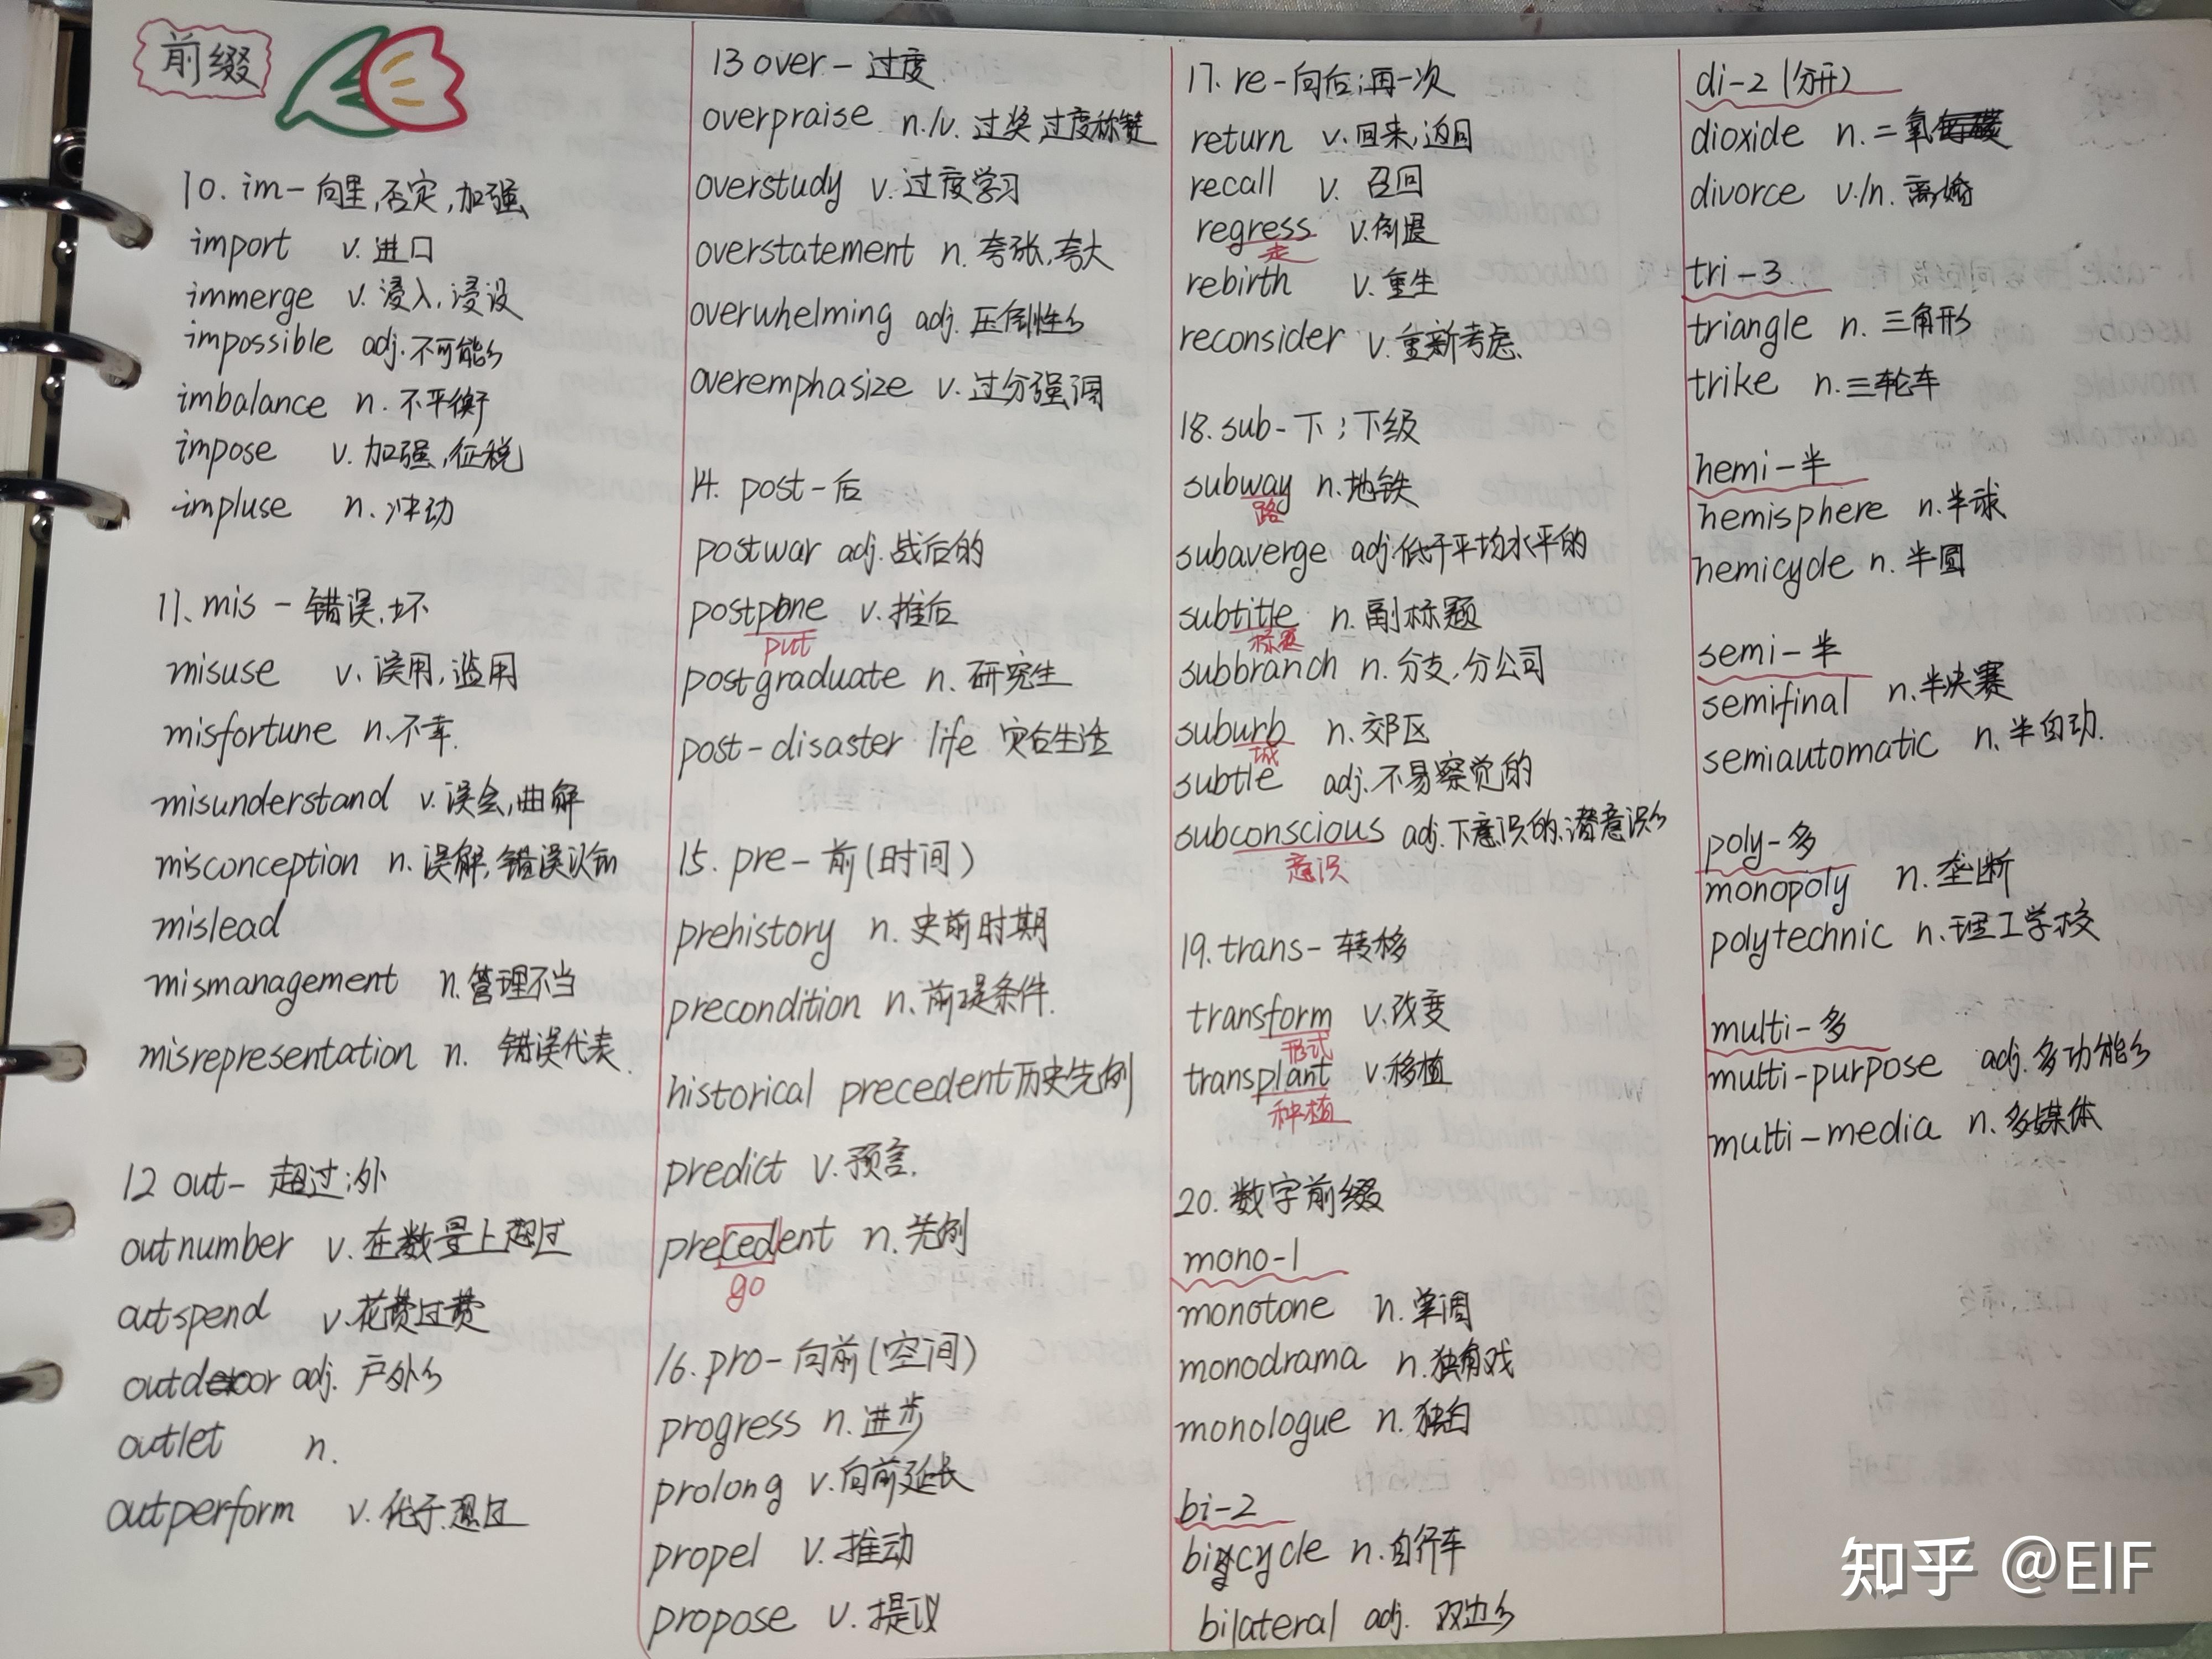 前缀
10. im- 向里,否定,加强
import v. 进口
immerge v. 浸入,浸没
impossible adj. 不可能的
imbalance n. 不平衡
impose v. 加强,征税
impluse n. 冲动
11. mis - 错误,坏
misuse v. 误用,滥用
misfortune n. 不幸.
misunderstand v. 误会,曲解
misconception n. 误解,错误认知
mislead
mismanagement n. 管理不当
misrepresentation n. 错误代表.
12 out- 超过;外
outnumber v. 在数量上超过
outspend v. 花费过费
outdoor adj. 户外的
outlet n.
outperform v. 优于,超过
13 over- 过度
overpraise n./v. 过奖,过度称赞
overstudy v. 过度学习
overstatement n. 夸张,夸大
overwhelming adj. 压倒性的
overemphasize v. 过分强调
14. post- 后
postwar adj. 战后的
postpone v. 推后
put
postgraduate n. 研究生
post-disaster life 灾后生活
15. pre- 前(时间)
prehistory n. 史前时期
precondition n. 前提条件.
historical precedent 历史先例
predict v. 预言.
precedent n. 先例
go
16. pro- 向前(空间)
progress n. 进步
prolong v. 向前延长
propel v. 推动
propose v. 提议
17. re- 向后;再一次
return v. 回来,返回
recall v. 召回
regress v. 倒退
走
rebirth v. 重生
reconsider v. 重新考虑.
18. sub- 下;下级
subway n. 地铁
路
subaverge adj. 低于平均水平的
subtitle n. 副标题
标题
subbranch n. 分支,分公司
suburb n. 郊区
城
subtle adj. 不易察觉的
subconscious adj. 下意识的,潜意识的
意识
19. trans- 转移
transform v. 改变
形式
transplant v. 移植
种植
20. 数字前缀
mono-1
monotone n. 单调
monodrama n. 独角戏
monologue n. 独白
bi-2
bicycle n. 自行车
bilateral adj. 双边的
di-2 (分开)
dioxide n. 二氧
divorce v./n. 离婚
tri-3
triangle n. 三角形
trike n. 三轮车
hemi-半
hemisphere n. 半球
hemicycle n. 半圆
semi-半
semifinal n. 半决赛
semiautomatic n. 半自动.
poly-多
monopoly n. 垄断
polytechnic n. 理工学校
multi-多
multi-purpose adj. 多功能的
multi-media n. 多媒体
知乎 @EIF